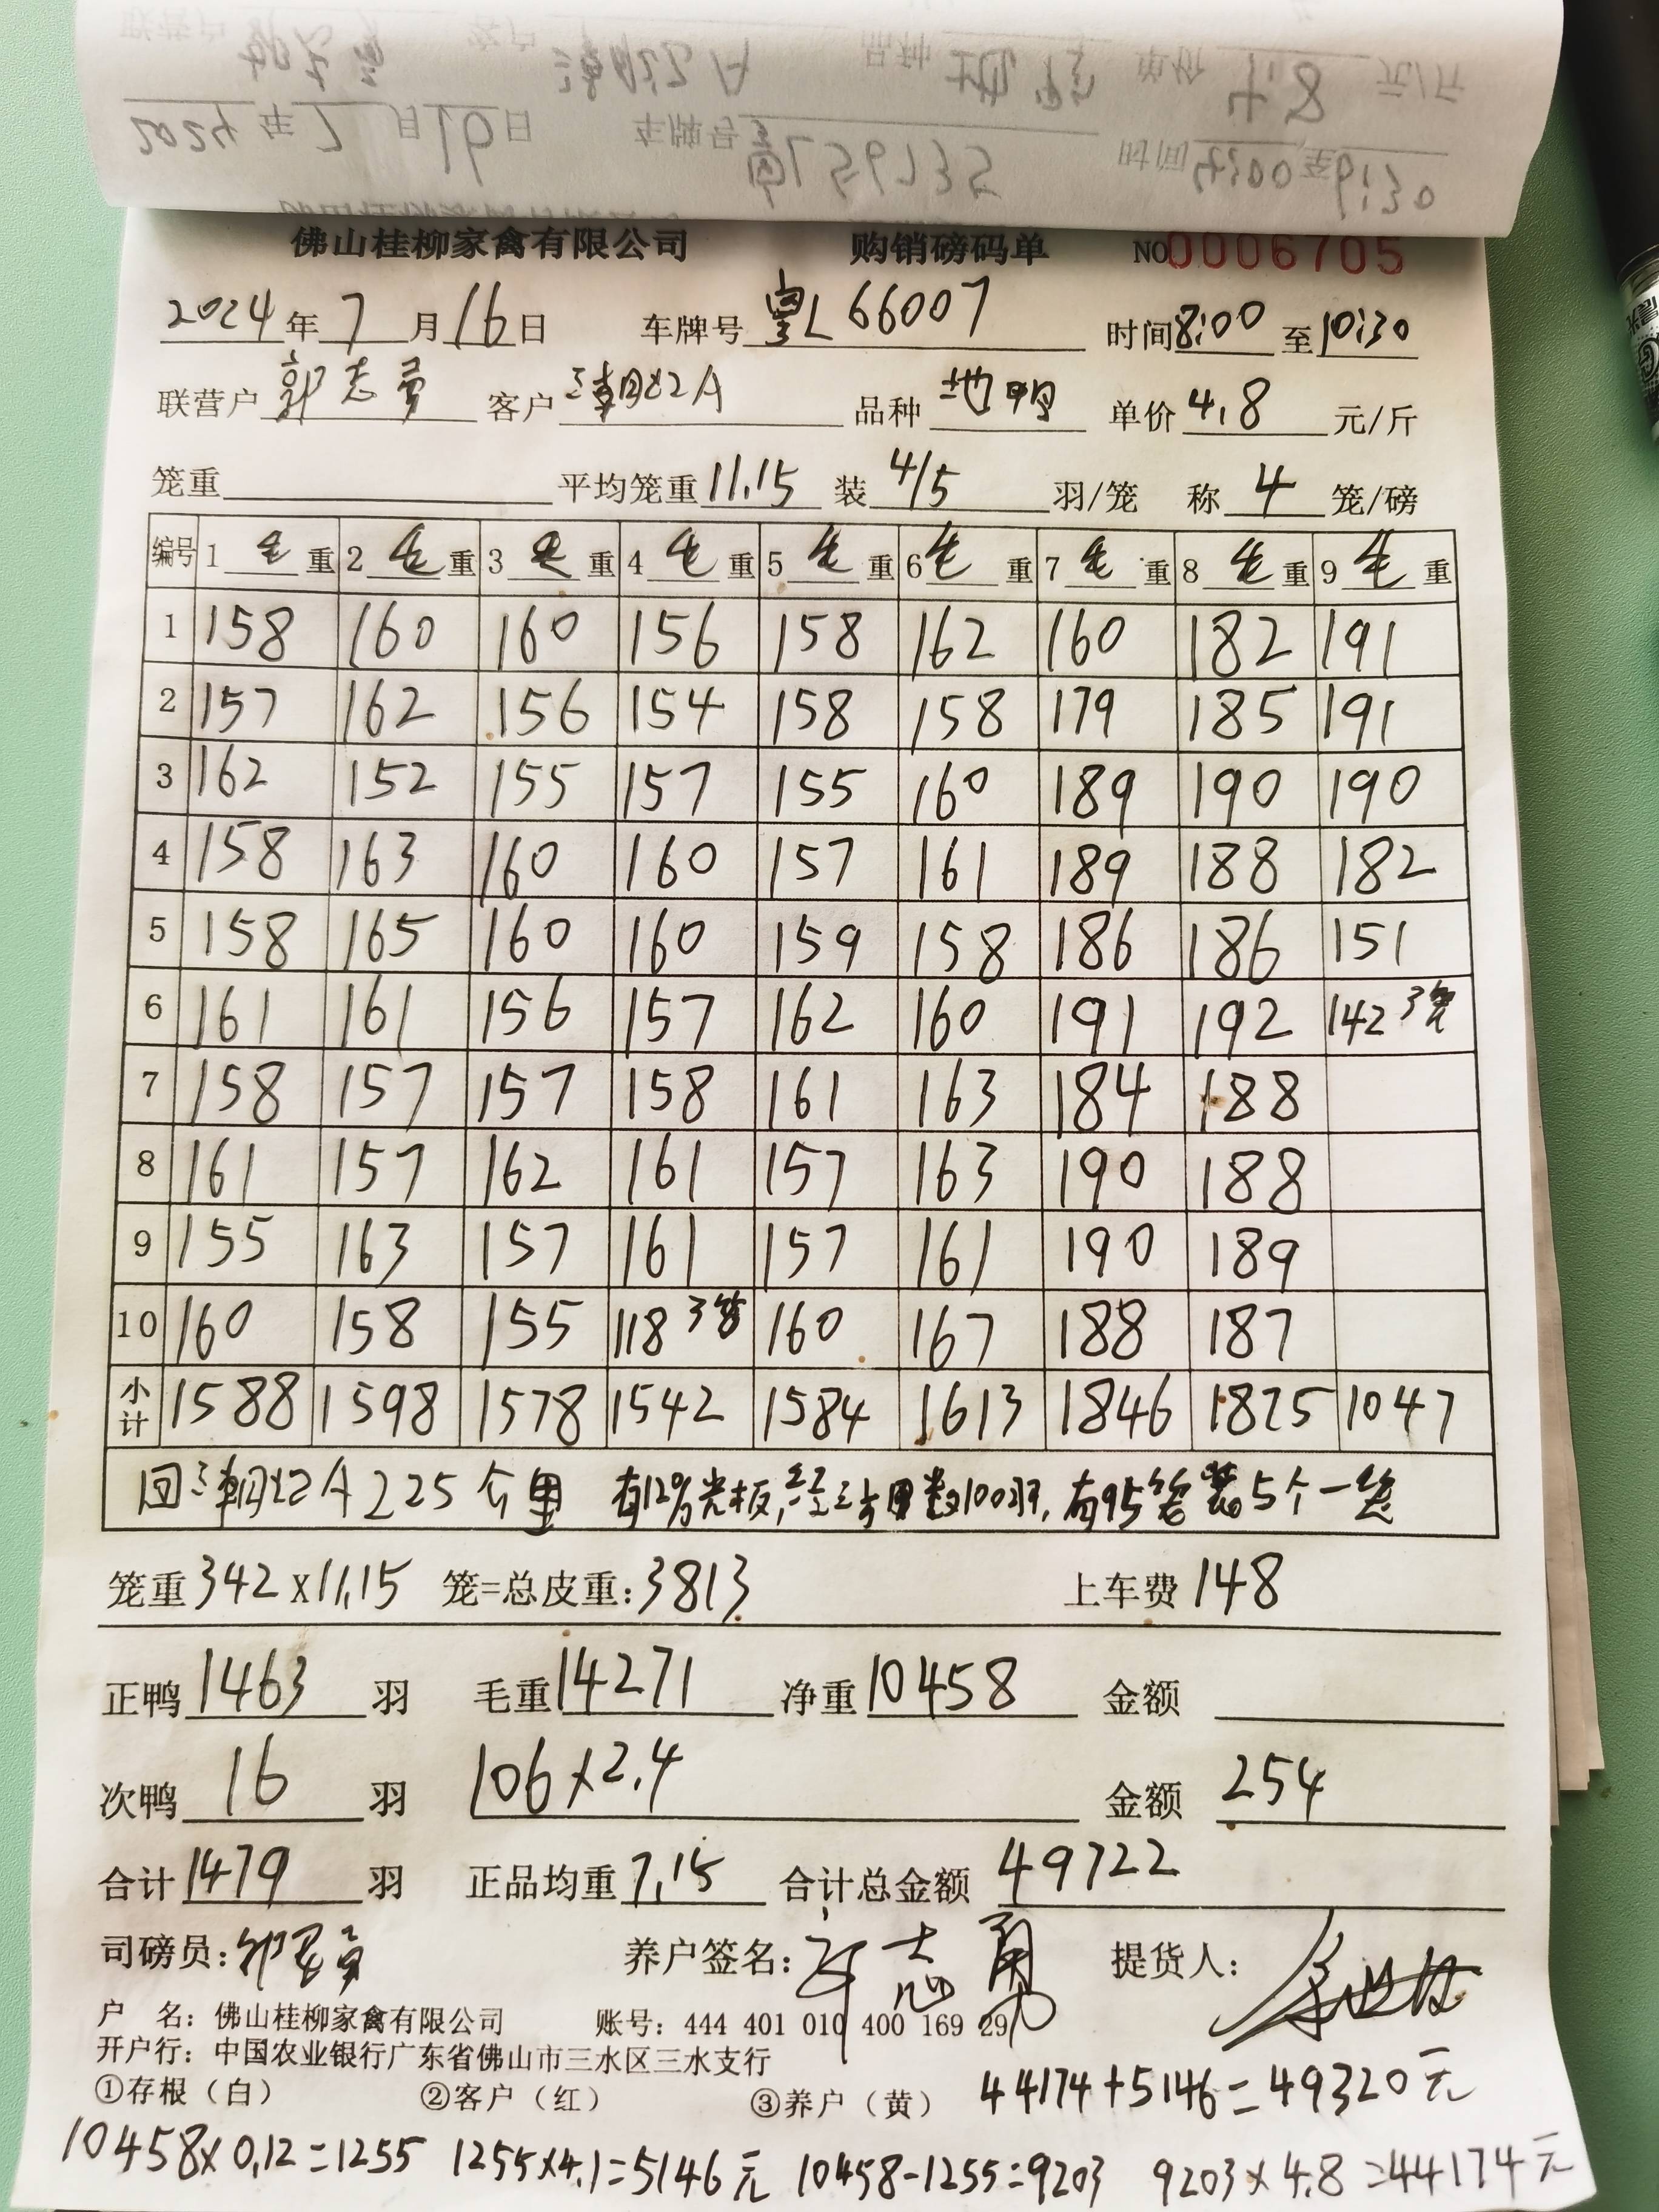 佛山桂柳家禽有限公司 购销磅码单 NO0006705
2024年7月16日 车牌号 L66007 时间8:00至10:30
联营户 郭志勇 客户 A 品种 单价4.8元/斤
笼重 平均笼重11.15 装4/5羽/笼 称4笼/磅
编号 1毛重 2毛重 3毛重 4毛重 5毛重 6毛重 7毛重 8毛重 9毛重
1 158 160 160 156 158 162 160 182 191
2 157 162 156 154 158 158 179 185 191
3 162 152 155 157 155 160 189 190 190
4 158 163 160 160 157 161 189 188 182
5 158 165 160 160 159 158 186 186 151
6 161 161 156 157 162 160 191 192 142 3笼
7 158 157 157 158 161 163 184 188
8 161 157 162 161 157 163 190 188
9 155 163 157 161 157 161 190 189
10 160 158 155 118 3笼 160 167 188 187
小计 1588 1598 1578 1542 1584 1613 1846 1875 1047
回 A 225公里 有12%光板, 100羽,有95笼装5个一笼
笼重342x11.15 笼=总皮重:3813 上车费148
正鸭1463羽 毛重14271 净重10458 金额
次鸭16羽 106x2.4 金额254
合计1479羽 正品均重7.15 合计总金额49722
司磅员: 养户签名:郭志勇 提货人:
户 名:佛山桂柳家禽有限公司 账号:444 401 010 400 169 29
开户行:中国农业银行广东省佛山市三水区三水支行
①存根(白) ②客户(红) ③养户(黄) 44174+5146=49320元
10458x0.12=1255 1255x4.1=5146元 10458-1255=9203 9203x4.8=44174元